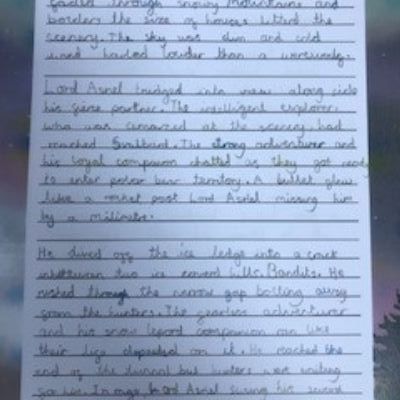 through snowy mountains and
borders the size of houses litterd the
scenery. The sky was dim and cold
wind hauled louder than a werewolf.
Lord Asriel trudged into view along side
his fierce partner. The intelligent explorer,
who was at the scenery, had
reached Svalbard. The strong adventurer and
his loyal companion chatted as they got ready
to enter polar bear territory. A bullet flew
like a rocket past Lord Asriel missing him
by a milimetre.
He dived off the ice ledge into a crack
inbetween two ice coverd hills. Bandits. He
rushed through the narrow gap bolting away
from the hunters. The fearless adventurer
and his snow lepord companion ran like
their life depended on it. He reached the
end of the tunnal but hunters were waiting
for him. In rage, Lord Asriel swung his sword